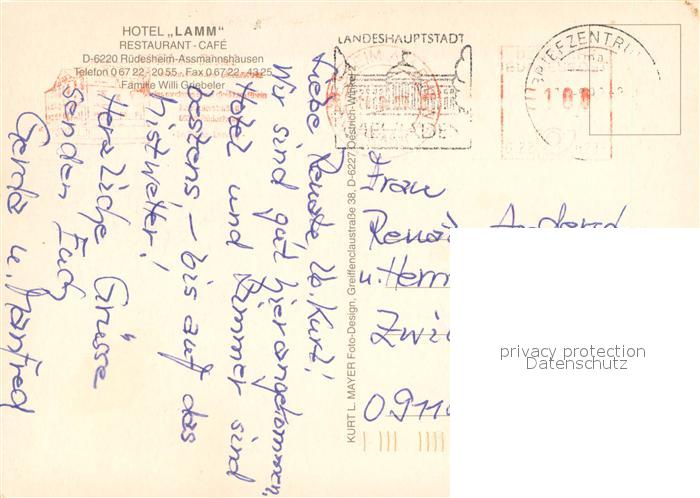 HOTEL „LAMM“
RESTAURANT - CAFÉ
D-6220 Rüdesheim-Assmannshausen
Telefon 0 67 22 - 20 55 · Fax 0 67 22 - 43 25
Familie Willi Griebeler
LANDESHAUPTSTADT
WIESBADEN
BRIEFZENTRUM
Liebe Renate lb. Kurt!
Wir sind gut hier angekommen,
Hotel und Zimmer sind
bestens – bis auf das
Mistwetter!
Herzliche Grüsse
senden Euch
Gerda u. Manfred
KURT L. MAYER Foto-Design, Greiffenclaustraße 38, D-6227 Oestrich-Winkel 2
Frau
u. Herrn
privacy protection
Datenschutz